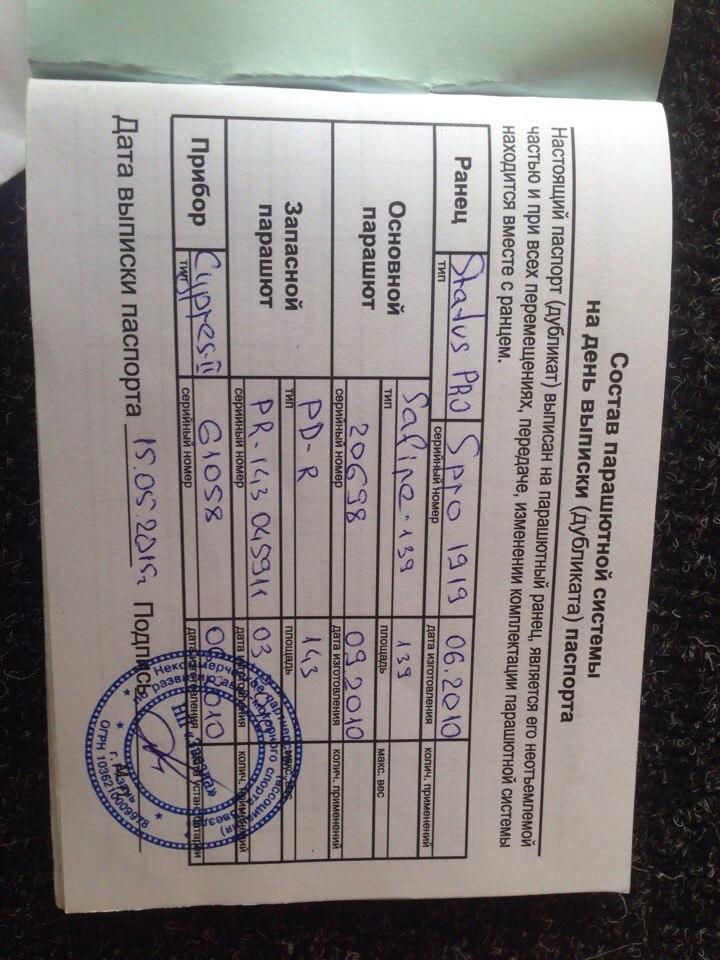 Состав парашютной системы
на день выписки (дубликата) паспорта
Настоящий паспорт (дубликат) выписан на парашютный ранец, является его неотъемлемой
частью и при всех перемещениях, передаче, изменении комплектации парашютной системы
находится вместе с ранцем.
Ранец Status PRO Spro 1919 06.2010
тип серийный номер дата изготовления колич. применений
Основной парашют
Safire-139 139
тип площадь макс. вес
20698 09 2010
серийный номер дата изготовления колич. применений
Запасной парашют
PD-R 143
тип площадь макс. вес
PR-143 045911 03
серийный номер колич. применений
Прибор Cypres-II 61058
тип серийный номер дата изготовления
Дата выписки паспорта 15.05.2015г Подпись
Некоммерческое партнерство
г. Рязань